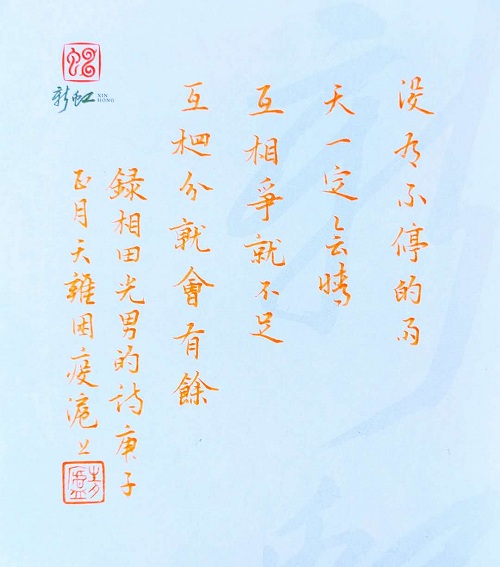 新虹
XIN
HONG
没有不停的雨
天一定会晴
互相爭就不足
互相分就會有餘
録相田光男的詩庚子
正月天難困疫滬上